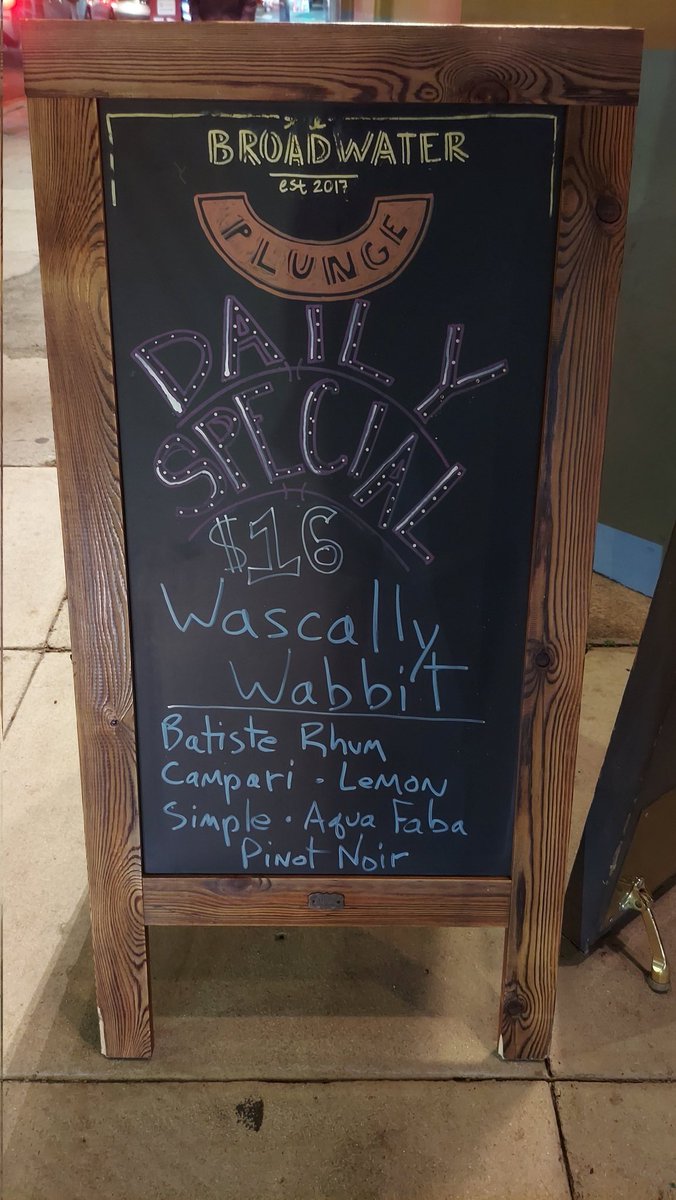 BROADWATER
est 2017
PLUNGE
DAILY
SPECIAL
$16
Wascally
Wabbit
Batiste Rhum
Campari · Lemon
Simple · Aqua Faba
Pinot Noir